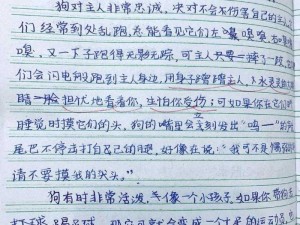 狗对主人非常忠诚，决对不会不伤害自己的主人
们经常到处乱跑，总能看见它们左嗅嗅，右
嗅，又一下子跑得无影无踪，可主人只要一
们会闪电般跑到主人身边，用身子蹭蹭主人，
一脸担忧地看着你，生怕你受伤；可如果你在它们
睡觉时摸它们的头，狗的嘴里会立刻发出"呜一"的
尾巴不停击打自己的腿，好像在说："我可不是
请不要摸我的头。"
狗有时非常活泼，气像一个小孩子，如果你带
打球，踢球，那它可就会变成一个